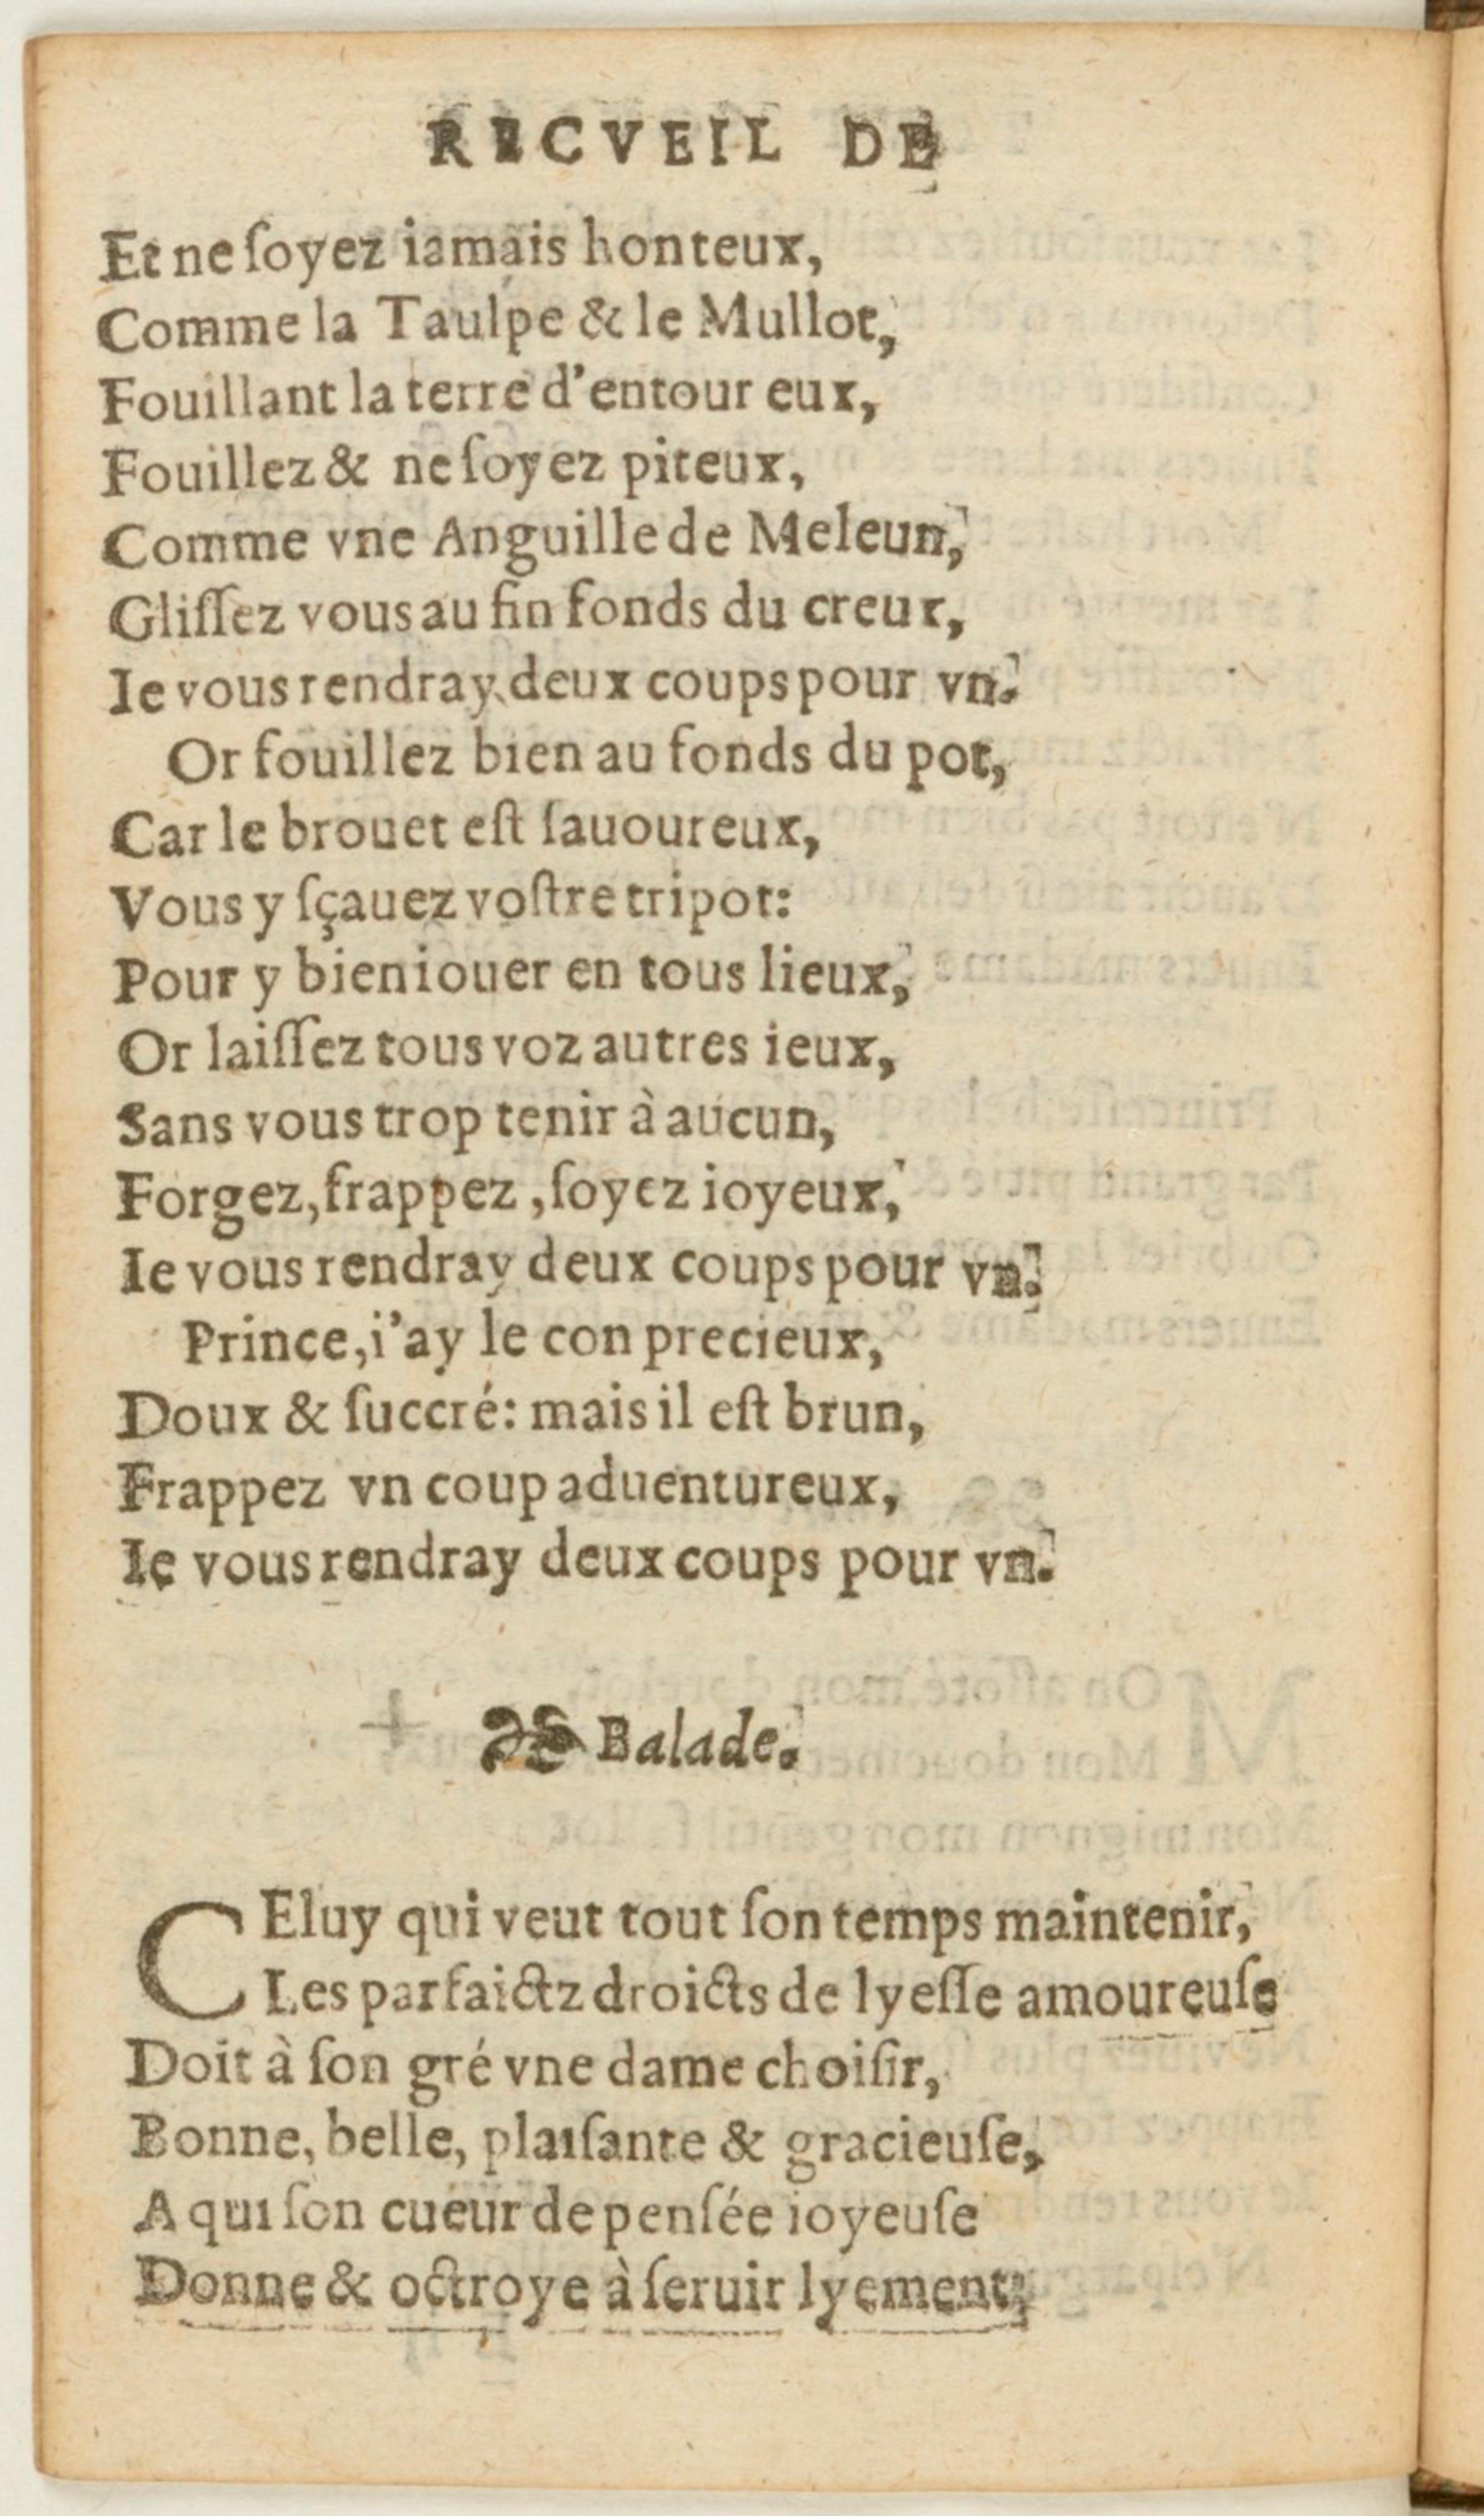 RECVEIL DE
Et ne ſoyez iamais honteux,
Comme la Taulpe & le Mullot,
Fouillant la terre d'entour eux,
Fouillez & ne ſoyez piteux,
Comme vne Anguille de Meleun,
Gliſſez vous au fin fonds du creux,
Ie vous rendray deux coups pour vn.
Or fouillez bien au fonds du pot,
Car le brouet eſt ſauoureux,
Vous y ſçauez voſtre tripot:
Pour y bien iouer en tous lieux,
Or laiſſez tous voz autres ieux,
Sans vous trop tenir à aucun,
Forgez, frappez, ſoyez ioyeux,
Ie vous rendray deux coups pour vn.
Prince, i'ay le con precieux,
Doux & ſuccré: mais il eſt brun,
Frappez vn coup aduentureux,
Ie vous rendray deux coups pour vn.
Balade.
CEluy qui veut tout ſon temps maintenir,
Les parfaictz droicts de lyeſſe amoureuſe
Doit à ſon gré vne dame choiſir,
Bonne, belle, plaiſante & gracieuſe,
A qui ſon cueur de penſée ioyeuſe
Donne & octroye à ſeruir lyement,